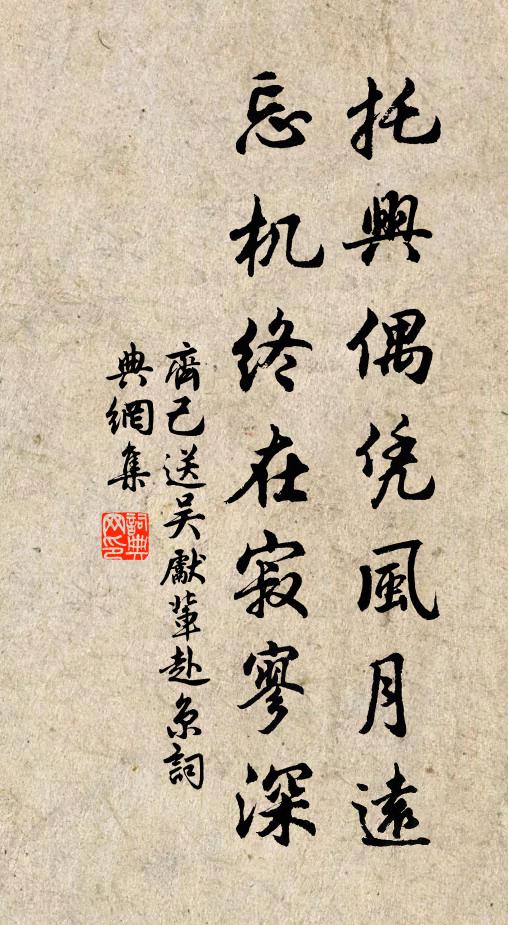 托興偶凭風月遠
忘机终在寂寥深
齊己送吴獻輩赴京詞
典網集
詞典
网印